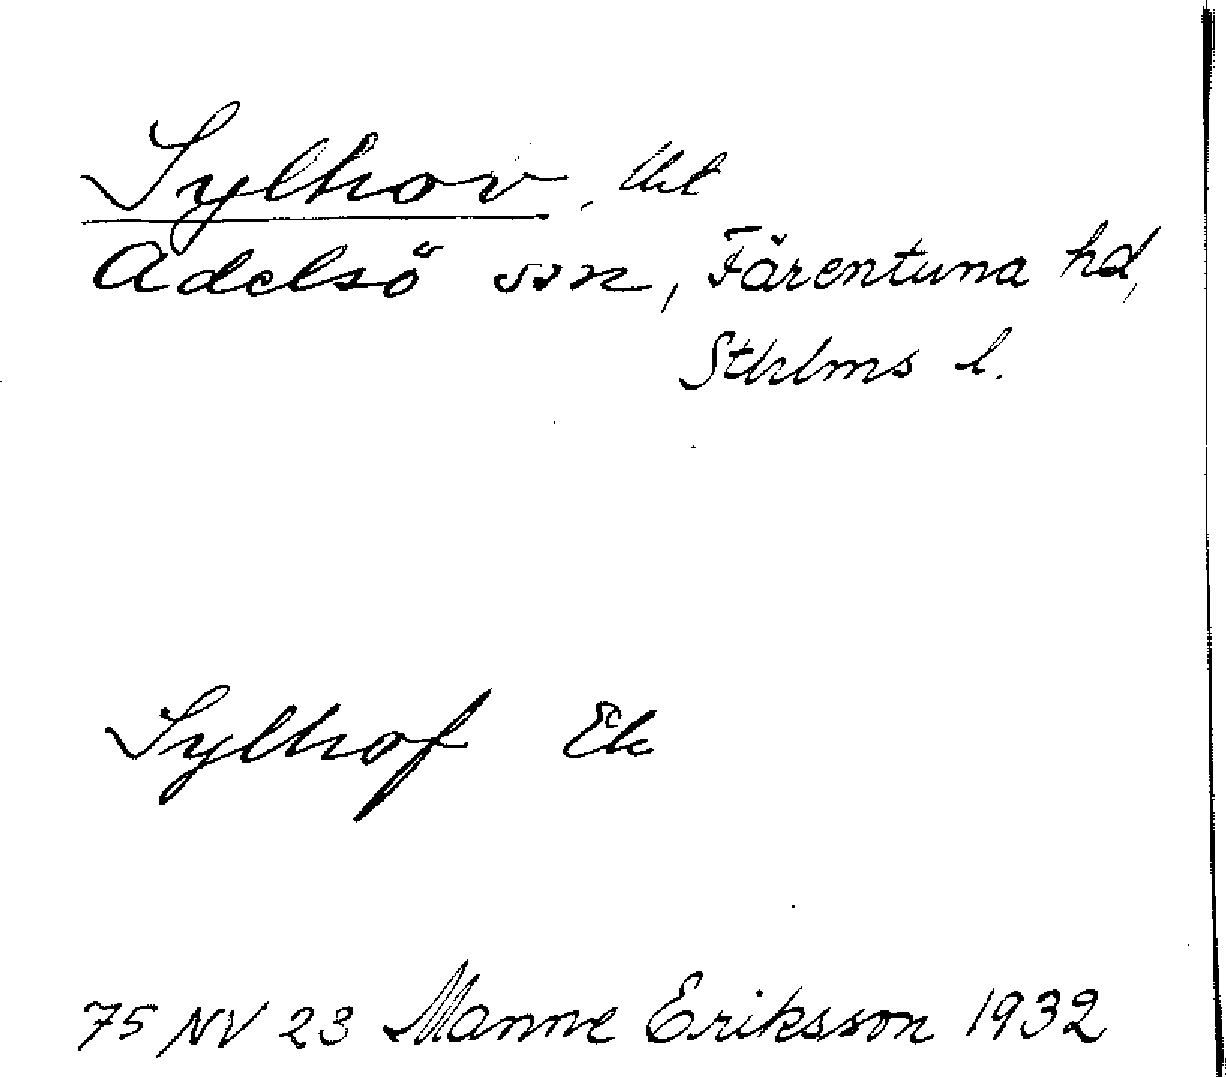 Sylhov,
Adelsö sn, Färentuna hd,
Sthlms l.
Sylhof Ek
75 NV 23 Manne Eriksson 1932